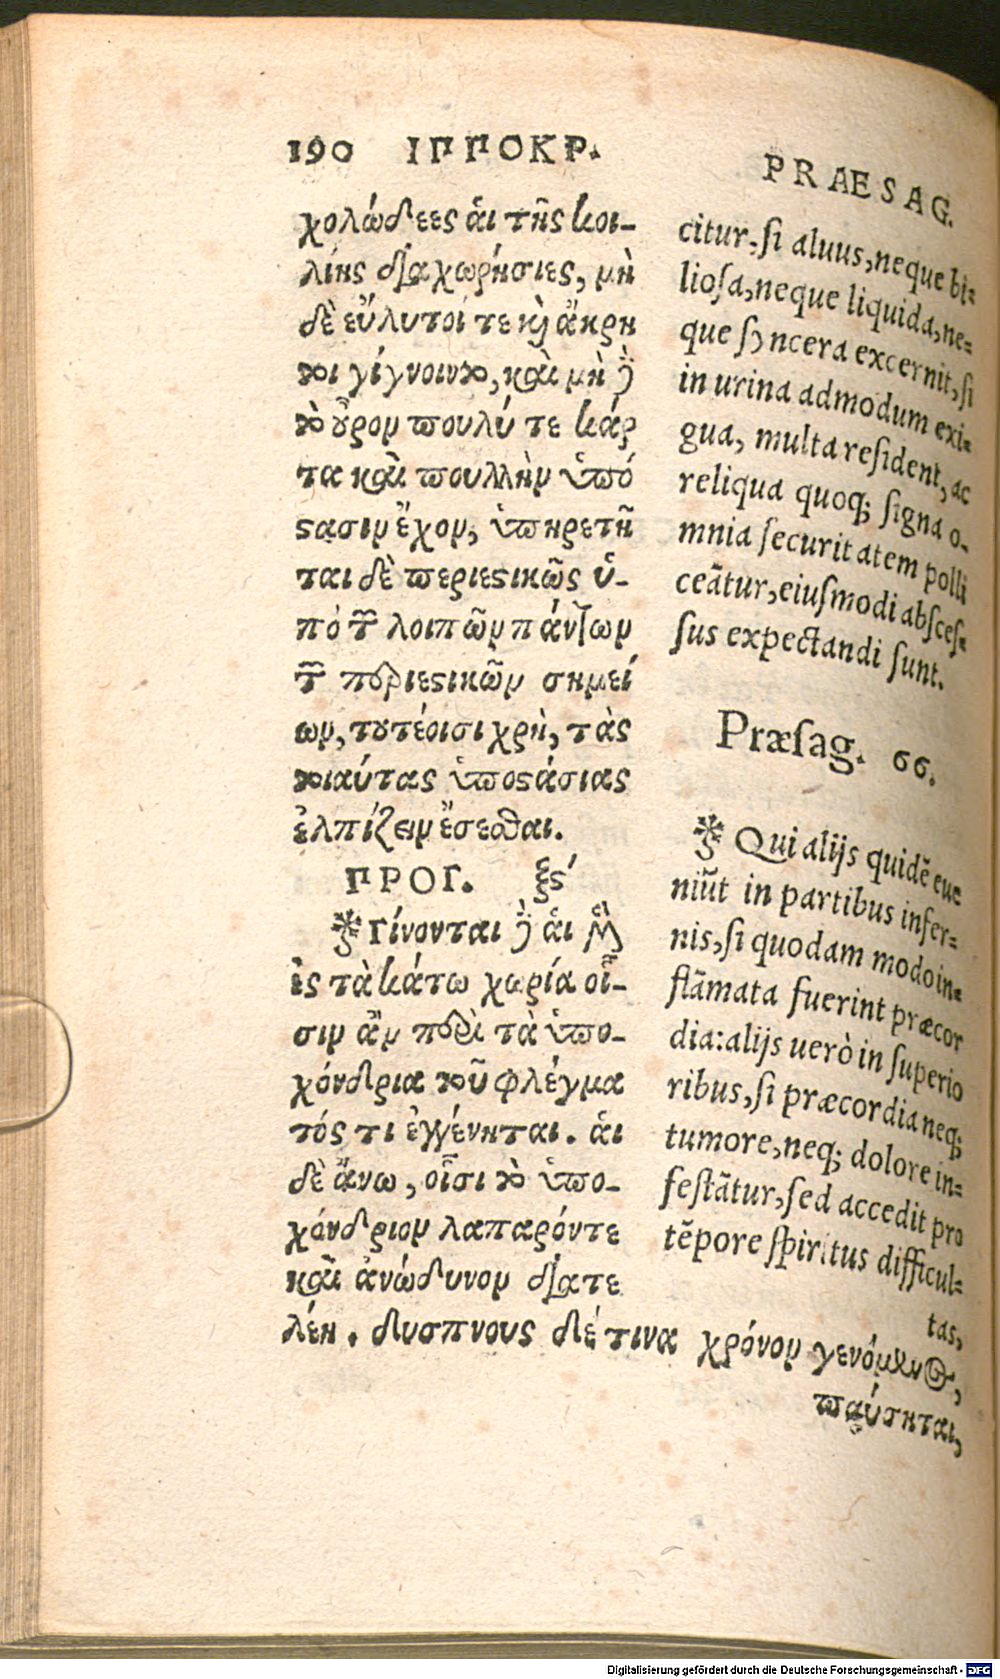 190 ΙΠΠΟΚΡ.
χολώδεες ἁι τῆς κοι-
λίης διαχωρήσιες, μὴ
δὲ εὔλυτοί τε καὶ ἄκρη
τοι γίγνοιντο, καὶ μὴ δὲ
τὸ οὖρον πουλύ τε κάρ
τα καὶ πουλλὴν ὑπό
ςασιν ἔχον, ὑπηρετῆ
ται δὲ περιεςικῶς ὑ-
πὸ τῶν λοιπῶν πάντων
τῶν περιεςικῶν σημεί
ων, τουτέοισι χρὴ, τὰς
τοιαύτας ὑποςάσιας
ἐλπίζειν ἔσεσθαι.
ΠΡΟΓ. ξς΄
Γίνονται δὲ ἁι μὲν
ἐς τὰ κάτω χωρία οἷ-
σιν ἂν περὶ τὰ ὑπο-
χόνδρια τοῦ φλέγμα
τός τι ἐγγένηται. ἁι
δὲ ἄνω, οἷσι τὸ ὑπο-
χόνδριον λαπαρόντε
καὶ ἀνώδυνον διατε
λέη. δυσπνους διέ τινα χρόνον γενόμενος,
παύσηται,
PRAESAG.
citur, si aluus, neque bi-
liosa, neque liquida, ne-
que syncera excernit, si
in urina admodum exi-
gua, multa resident, ac
reliqua quoq; signa o-
mnia securitatem polli
ceātur, eiusmodi absces-
sus expectandi sunt.
Præsag. 66.
Qui alijs quidē eue
niūt in partibus infer-
nis, si quodam modo in-
flāmata fuerint præcor
dia: alijs uerò in superio
ribus, si præcordia neq;
tumore, neq; dolore in-
festātur, sed accedit pro
tēpore spiritus difficul-
tas,
Digitalisierung gefördert durch die Deutsche Forschungsgemeinschaft - DFG